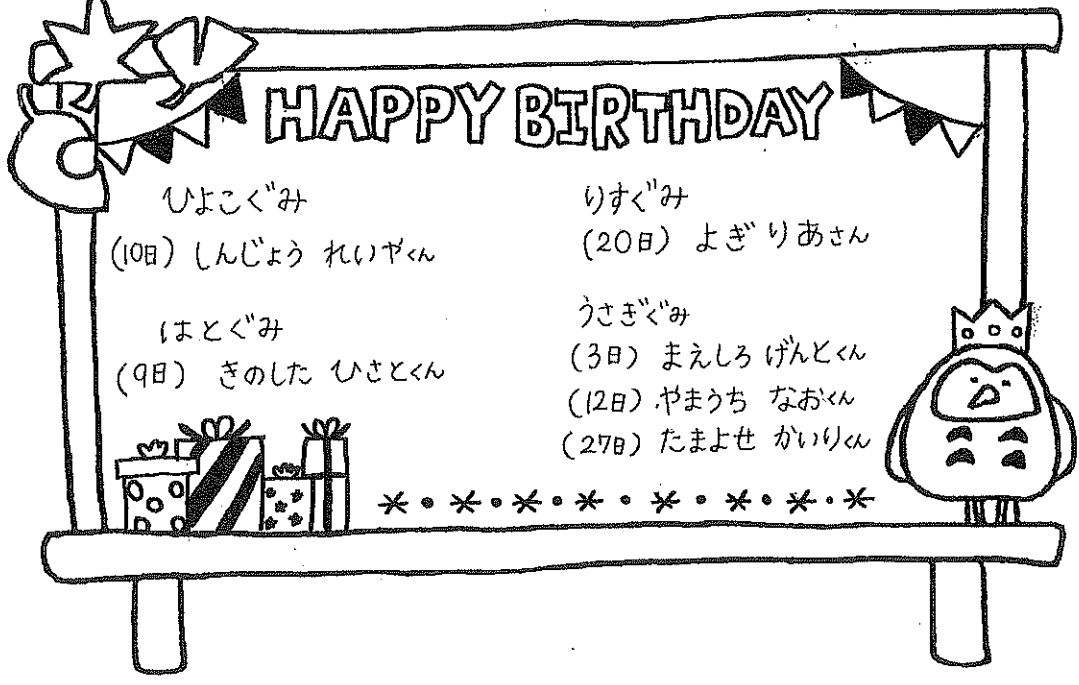 HAPPY BIRTHDAY
ひよこぐみ
(10日) しんじょう れいやくん
はとぐみ
(9日) きのした ひさとくん
りすぐみ
(20日) よぎ りあさん
うさぎぐみ
(3日) まえしろ げんとくん
(12日) やまうち なおくん
(27日) たまよせ かいりくん